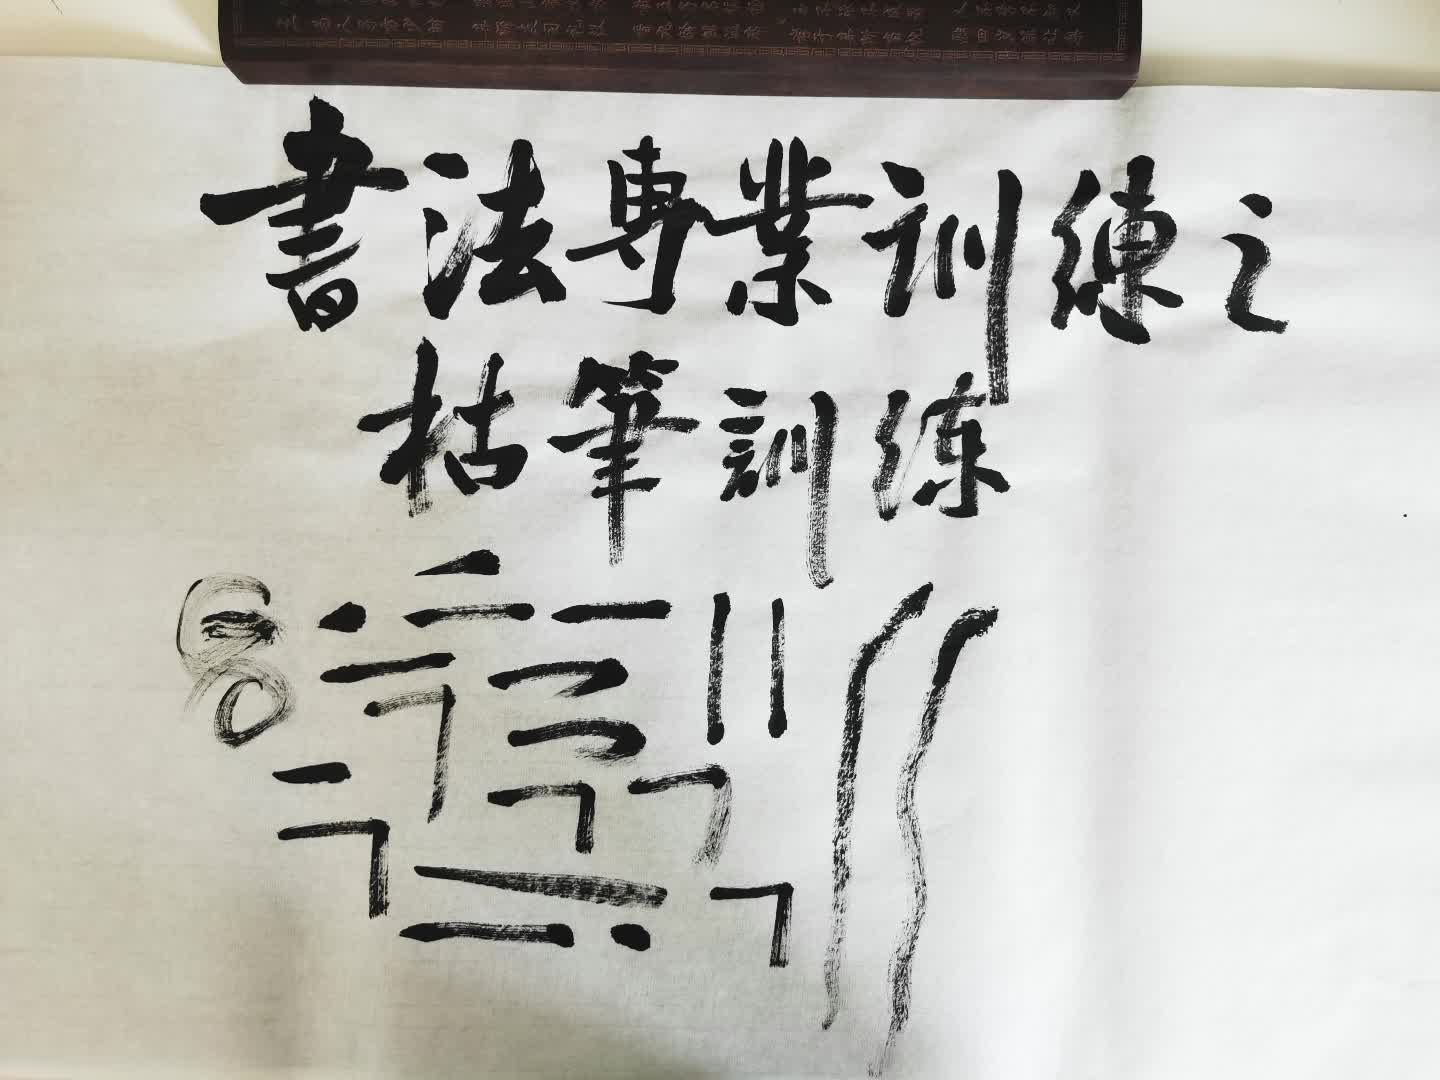 書法專業訓練之
枯筆訓练